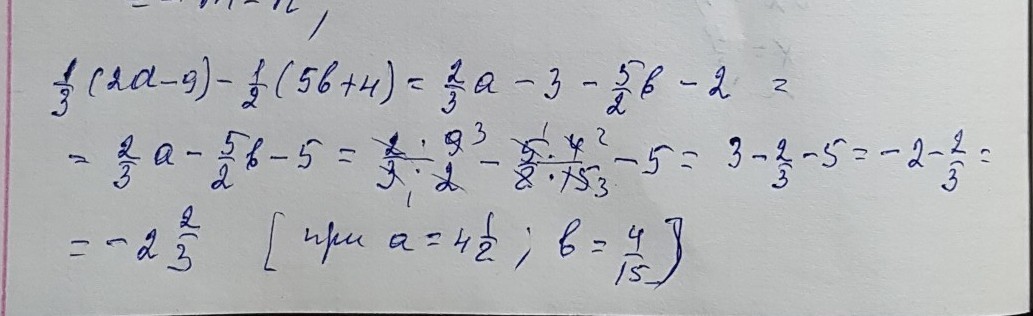 = - m - n ;
1/3 (2a - 9) - 1/2 (5b + 4) = 2/3 a - 3 - 5/2 b - 2 =
= 2/3 a - 5/2 b - 5 = 2 · 9 3 / 3 1 · 2 - 5 1 · 4 2 / 2 · 15 3 - 5 = 3 - 2/3 - 5 = - 2 - 2/3 =
= - 2 2/3 [ при a = 4 1/2 ; b = 4/15 ]